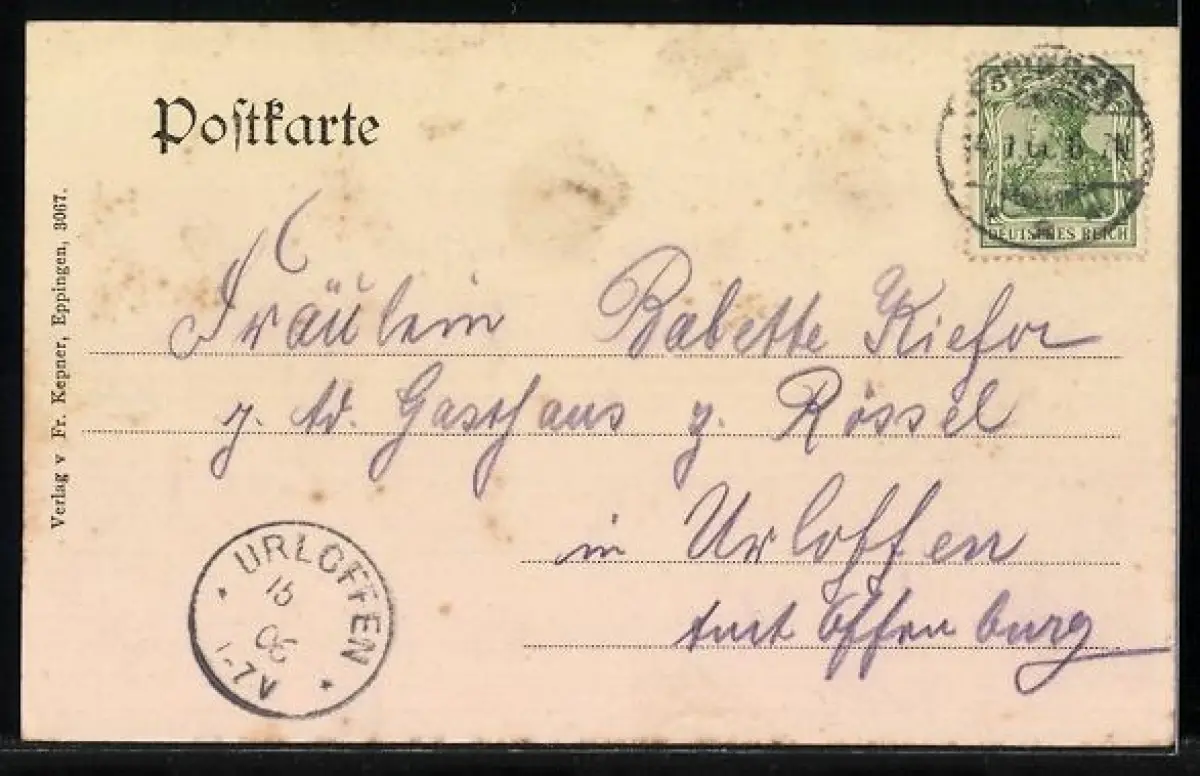 Postkarte
5
DEUTSCHES REICH
Verlag v Fr. Kepner, Eppingen, 3067.
Fräulein Babette Kiefer
z. Gasthaus z. Rössel
in Urloffen
Amt Offenburg
URLOFFEN
15
06
1-7V